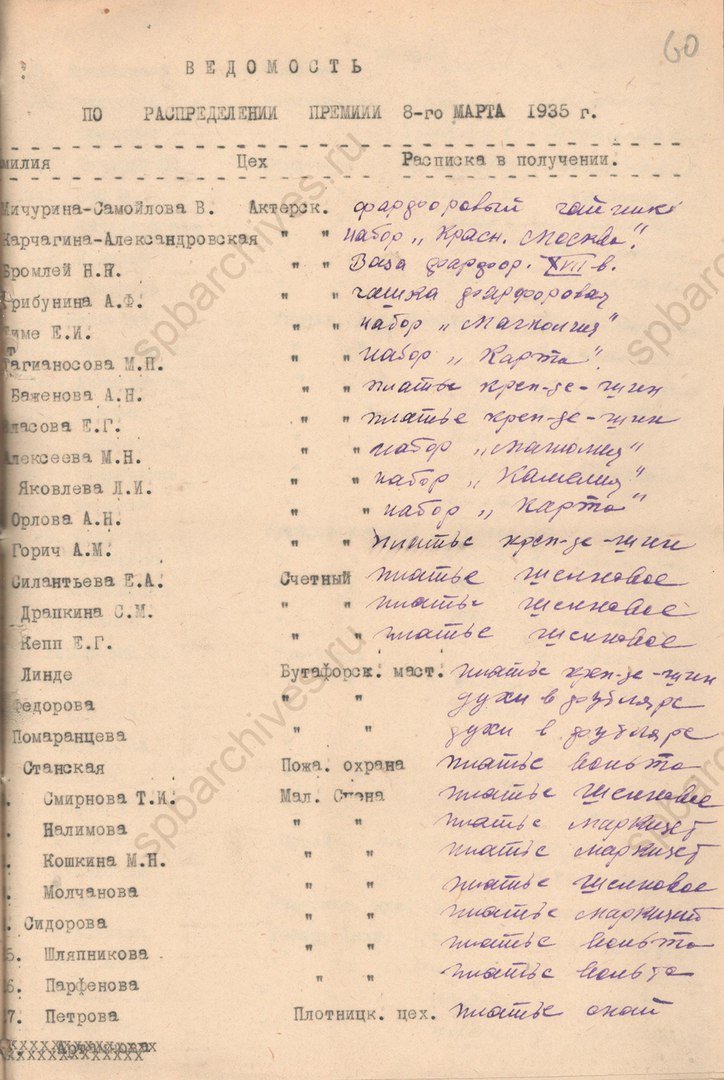 60
ВЕДОМОСТЬ
ПО РАСПРЕДЕЛЕНИИ ПРЕМИИИ 8-го МАРТА 1935 г.
милия Цех Расписка в получении.
Мичурина-Самойлова В. Актерск. фарфоровый чайник
Карчагина-Александровская " " набор „Красн. Москва".
Бромлей Н.Н. " " Ваза фарфор. XVIII в.
Грибунина А.Ф. " " чашка фарфоровая
Тиме Е.И. " " набор „Магнолия"
Тагианосова М.Н. " " набор „Карта".
Баженова А.Н. " " платье креп-де-шин
Власова Е.Г. " " платье креп-де-шин
Алексеева М.Н. " " набор
Яковлева Л.И. " " набор „Камелия"
Орлова А.Н. " " набор „Карта"
Горич А.М. " " платье креп-де-шин
Силантьева Е.А. Счетный платье шелковое
Драпкина С.М. " " платье шелковое
Кепп Е.Г. " " платье шелковое
Линде Бутафорск. маст. платье креп-де-шин
Федорова " " духи в футляре
Помаранцева " " духи в футляре
Станская Пожа. охрана платье вольта
Смирнова Т.И. Мал. Сцена платье шелковое
Налимова " " платье маркизет
Кошкина М.Н. " " платье маркизет
Молчанова " " платье шелковое
Сидорова " " платье маркизет
5. Шляпникова " " платье вольта
6. Парфенова " " платье вольта
7. Петрова Плотницк. цех. платье
spbarchives.ru
spbarchives.ru
spbarchives.ru
spbarchives.ru